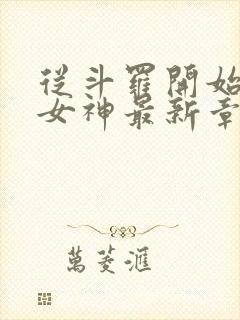 從斗羅開始
女神最新章
萬菱滙